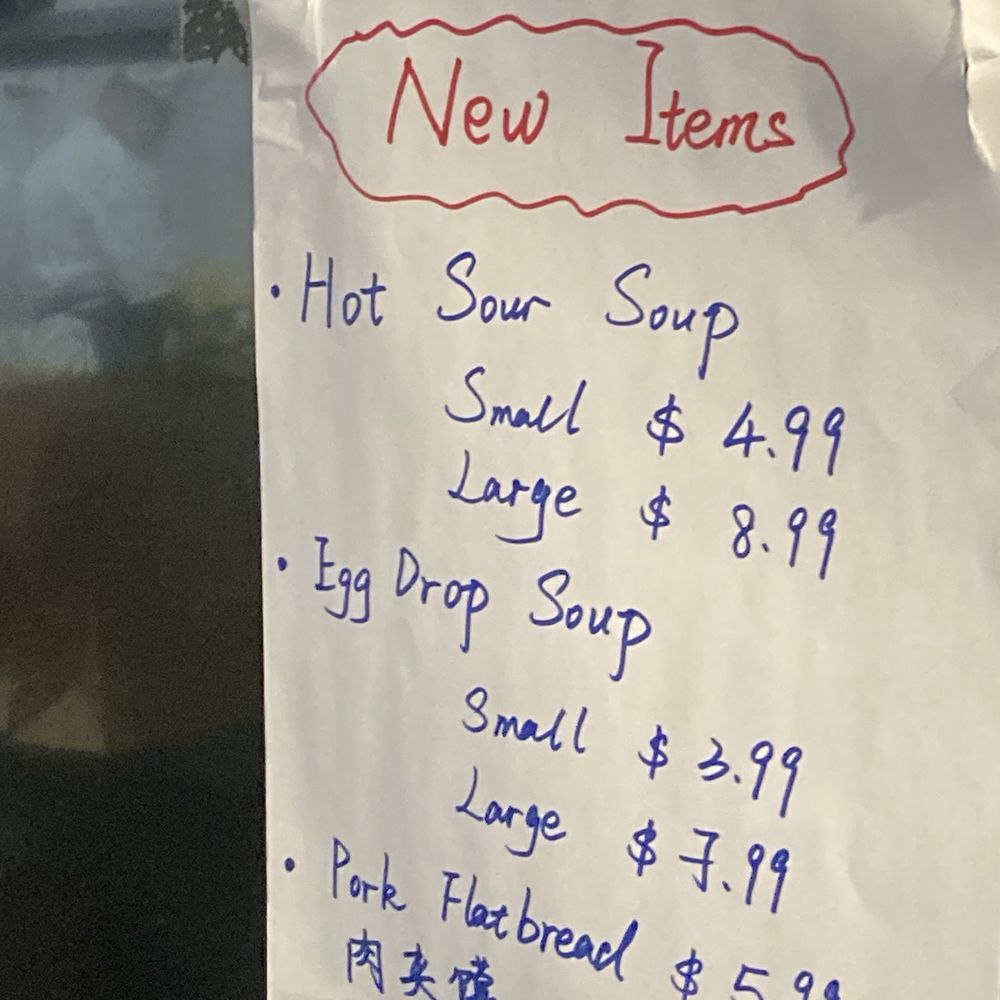 New Items
· Hot Sour Soup
Small $ 4.99
Large $ 8.99
· Egg Drop Soup
Small $ 3.99
Large $ 7.99
· Pork Flatbread $ 5.99
肉夹馍